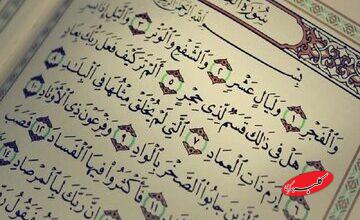 سُورَةُ
وَالْفَجْرِ ١ وَلَيَالٍ عَشْرٍ ٢ وَالشَّفْعِ وَالْوَتْرِ ٣ وَاللَّيْلِ إِذَا يَسْرِ
هَلْ فِي ذَٰلِكَ قَسَمٌ لِّذِي حِجْرٍ ٥ أَلَمْ تَرَ كَيْفَ فَعَلَ رَبُّكَ بِعَادٍ
إِرَمَ ذَاتِ الْعِمَادِ ٧ الَّتِي لَمْ يُخْلَقْ مِثْلُهَا فِي الْبِلَادِ
جَابُوا الصَّخْرَ بِالْوَادِ ٩ وَفِرْعَوْنَ ذِي الْأَوْتَادِ ١٠
فَأَكْثَرُوا فِيهَا الْفَسَادَ ١٢ فَصَبَّ
إِنَّ رَبَّكَ لَبِالْمِرْصَادِ